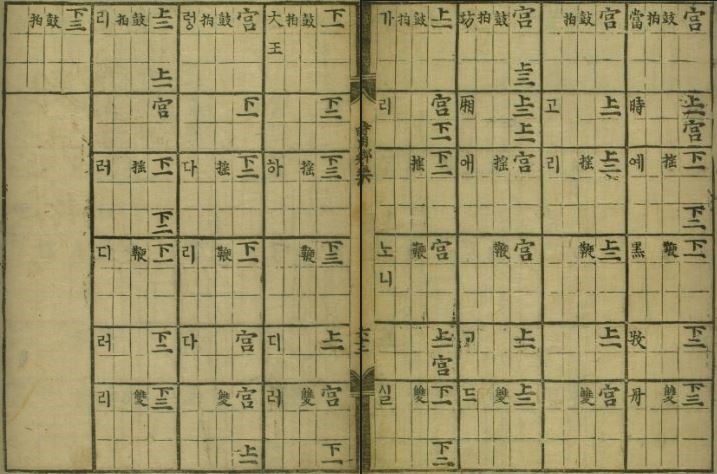 宮上一宮下一下二下一下二下三
鼓搖鞭雙
拍
當時예黑牧丹
宮上一上二上二上一宮
鼓搖鞭雙
拍
고리
宮上三上二上一宮宮上一上二
鼓搖鞭雙
拍
坊廂애고드
上一宮下一下二宮上一宮下一下二
鼓搖鞭雙
拍
가리노니실
時用鄕樂
下一下二下三下三上一宮下一
鼓搖鞭雙
拍
大王하디러
宮下一下二下一宮宮上一
鼓搖鞭雙
拍
렁다리다
上二上一宮下一下二下一下二下三
鼓搖鞭雙
拍
리러디러리
下三
鼓
拍